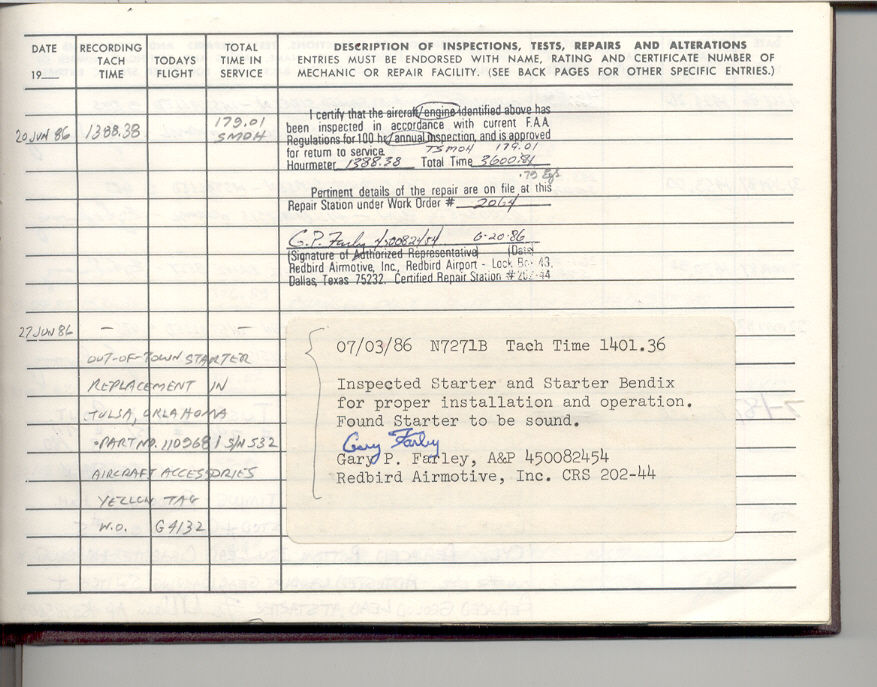 DATE
19___
RECORDING
TACH
TIME
TODAYS
FLIGHT
TOTAL
TIME IN
SERVICE
DESCRIPTION OF INSPECTIONS, TESTS, REPAIRS AND ALTERATIONS
ENTRIES MUST BE ENDORSED WITH NAME, RATING AND CERTIFICATE NUMBER OF
MECHANIC OR REPAIR FACILITY. (SEE BACK PAGES FOR OTHER SPECIFIC ENTRIES.)
20 JUN 86 1388.38 179.01
SMOH
I certify that the aircraft/engine identified above has
been inspected in accordance with current F.A.A.
Regulations for 100 hr/annual inspection, and is approved
for return to service. TSMOH 179.01
Hourmeter 1388.38 Total Time 3600.81
Pertinent details of the repair are on file at this
Repair Station under Work Order # 2064
G.P. Farley 450082454 6-20-86
(Signature of Authorized Representative) (Date)
Redbird Airmotive, Inc., Redbird Airport - Lock Box 43,
Dallas, Texas 75232. Certified Repair Station #202-44
27 JUN 86 — —
OUT-OF-TOWN STARTER
REPLACEMENT IN
TULSA, OKLAHOMA
PART NO. 110968 S/N 532
AIRCRAFT ACCESSORIES
YELLOW TAG
W.O. G4132
07/03/86 N7271B Tach Time 1401.36
Inspected Starter and Starter Bendix
for proper installation and operation.
Found Starter to be sound.
Gary Farley
Gary P. Farley, A&P 450082454
Redbird Airmotive, Inc. CRS 202-44